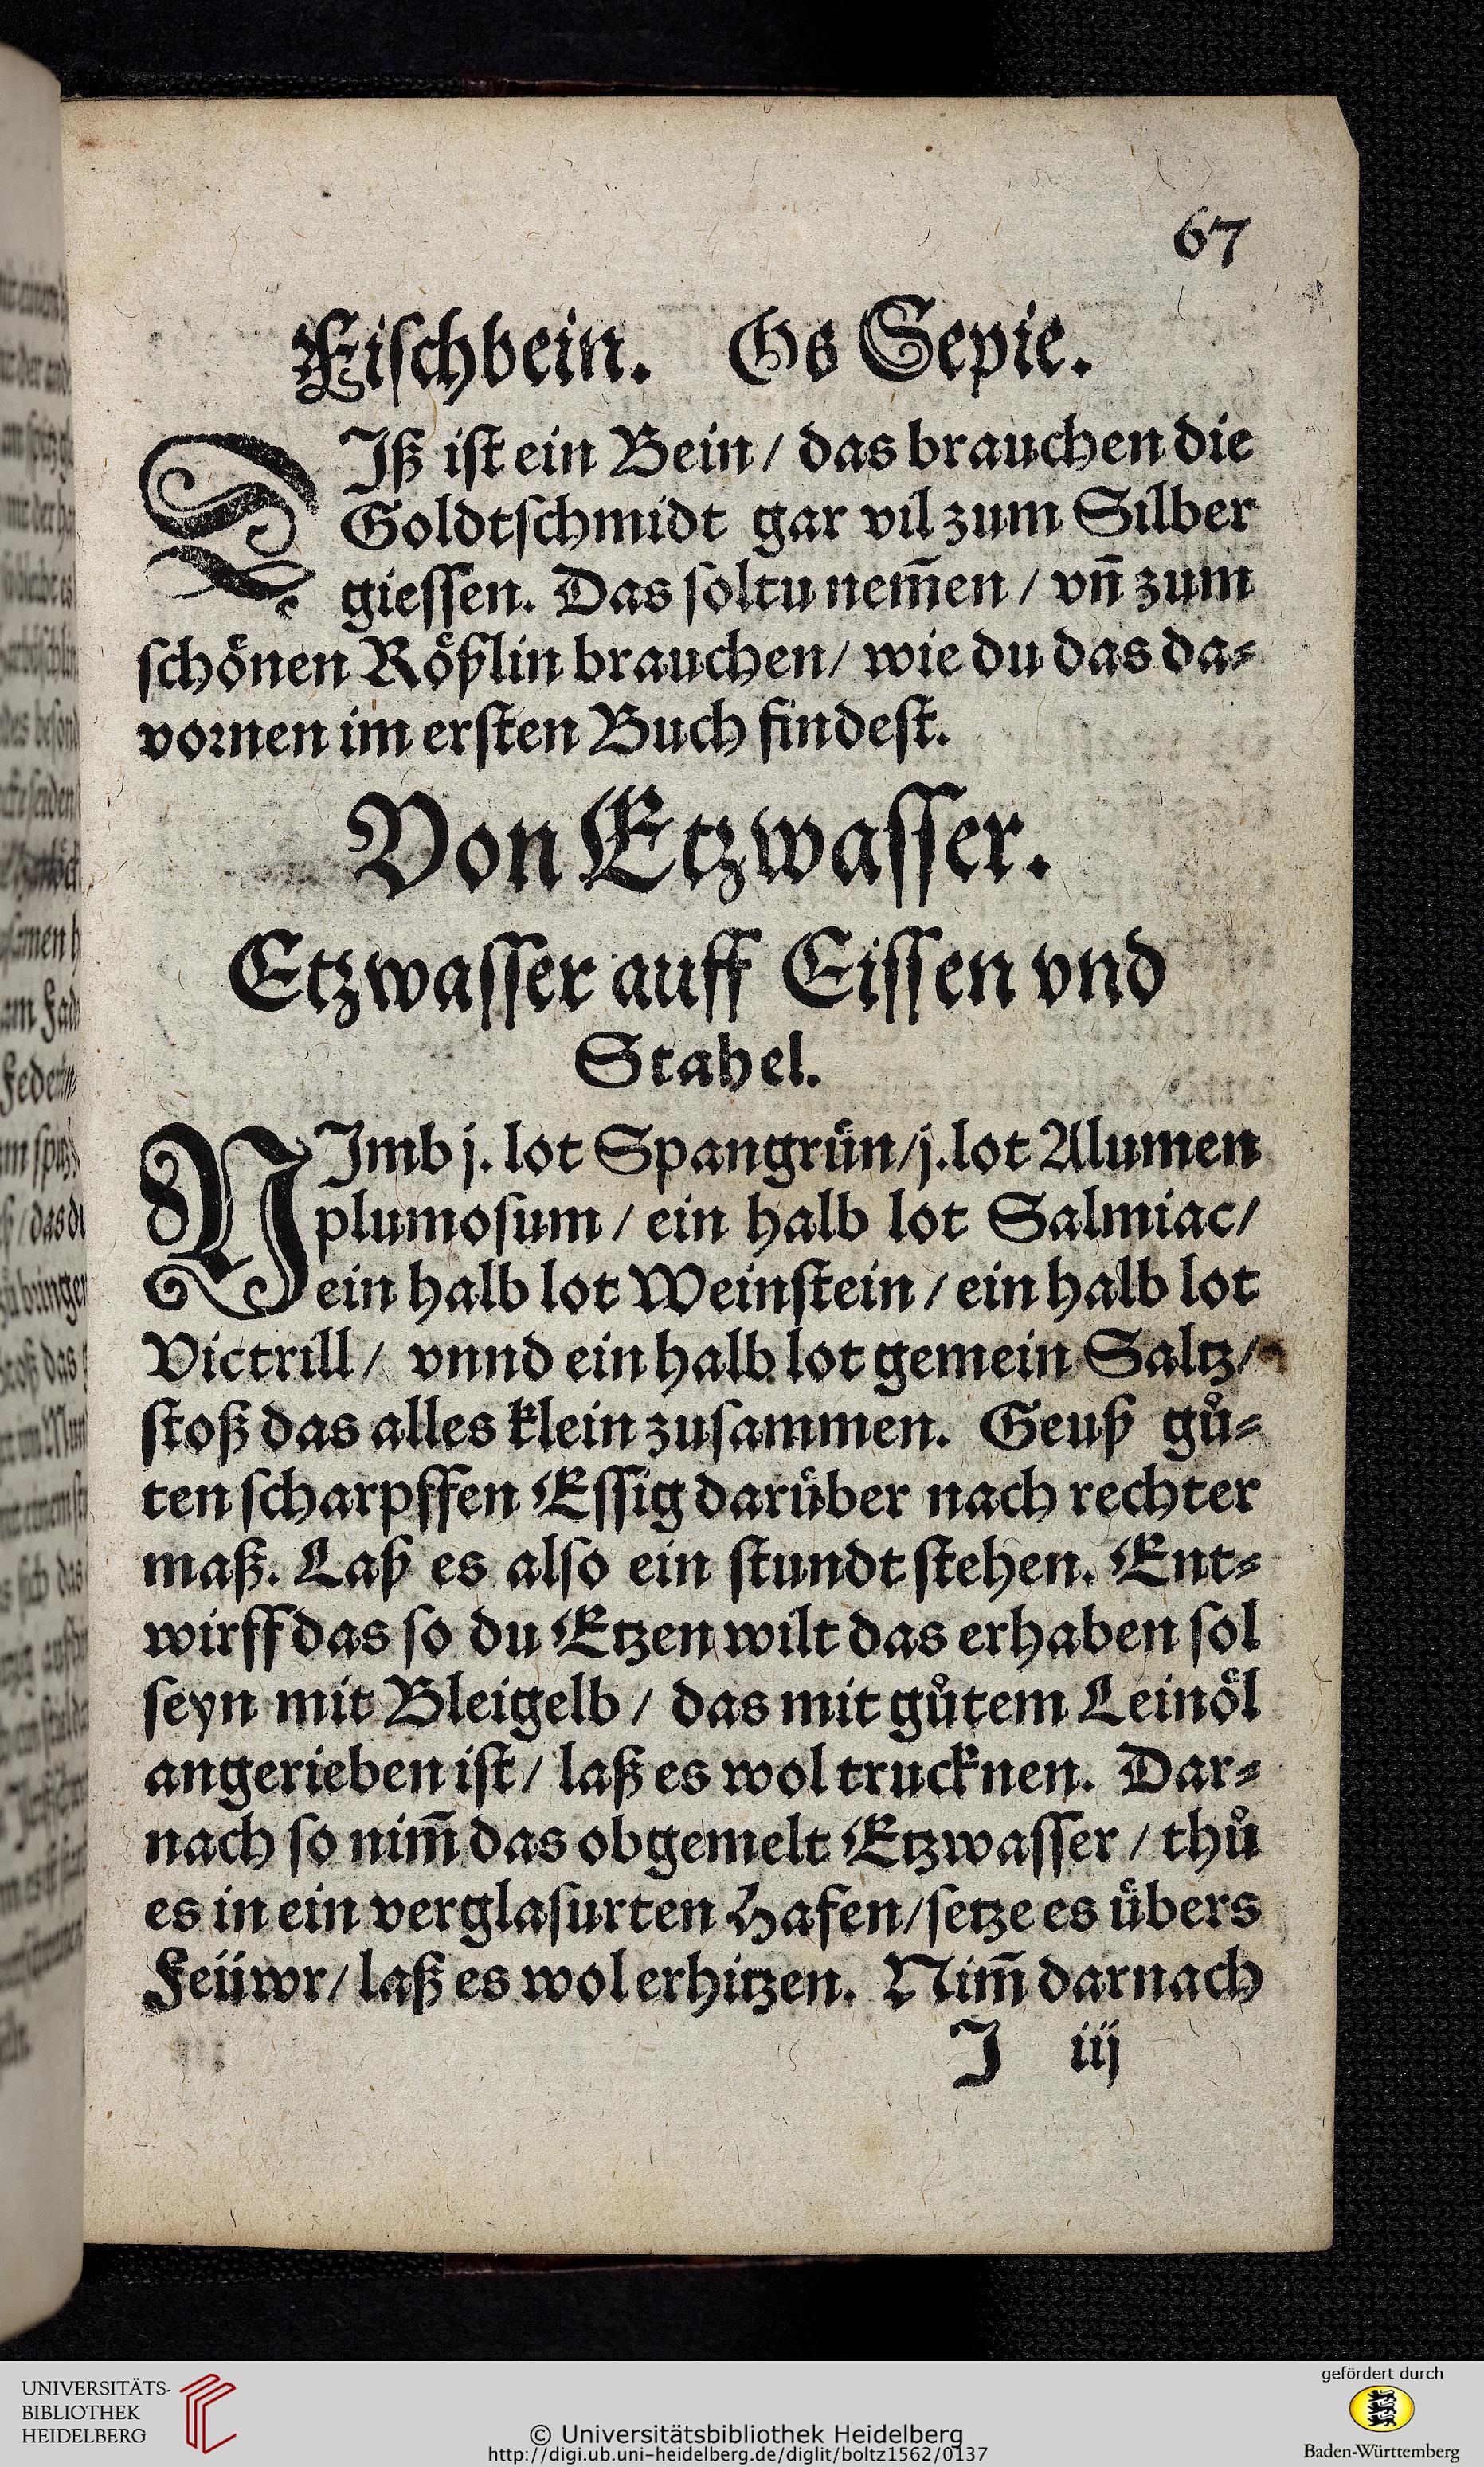 67
Fischbein. Os Sepie.
DIß ist ein Bein / das brauchen die
Goldtschmidt gar vil zum Silber
giessen. Das soltu nem̄en / vn̄ zum
schoͤnen Roͤßlin brauchen / wie du das da⸗
vornen im ersten Buch findest.
Von Etzwasser.
Etzwasser auff Eissen vnd
Stahel.
NImb j. lot Spangruͤn / j. lot Alumen
plumosum / ein halb lot Salmiac /
ein halb lot Weinstein / ein halb lot
Victrill / vnnd ein halb lot gemein Saltz /
stoß das alles klein zusammen. Geuß guͦ⸗
ten scharpffen Essig daruͤber nach rechter
maß. Laß es also ein stundt stehen. Ent⸗
wirff das so du Etzen wilt das erhaben sol
seyn mit Bleigelb / das mit guͦtem Leinoͤl
angerieben ist / laß es wol trucknen. Dar⸗
nach so nim̄ das obgemelt Etzwasser / thuͦ
es in ein verglasurten Hafen / setze es uͤbers
Feüwr / laß es wol erhitzen. Nim̄ darnach
J iij
UNIVERSITÄTS-
BIBLIOTHEK
HEIDELBERG
© Universitätsbibliothek Heidelberg
http://digi.ub.uni-heidelberg.de/diglit/boltz1562/0137
gefördert durch
Baden-Württemberg